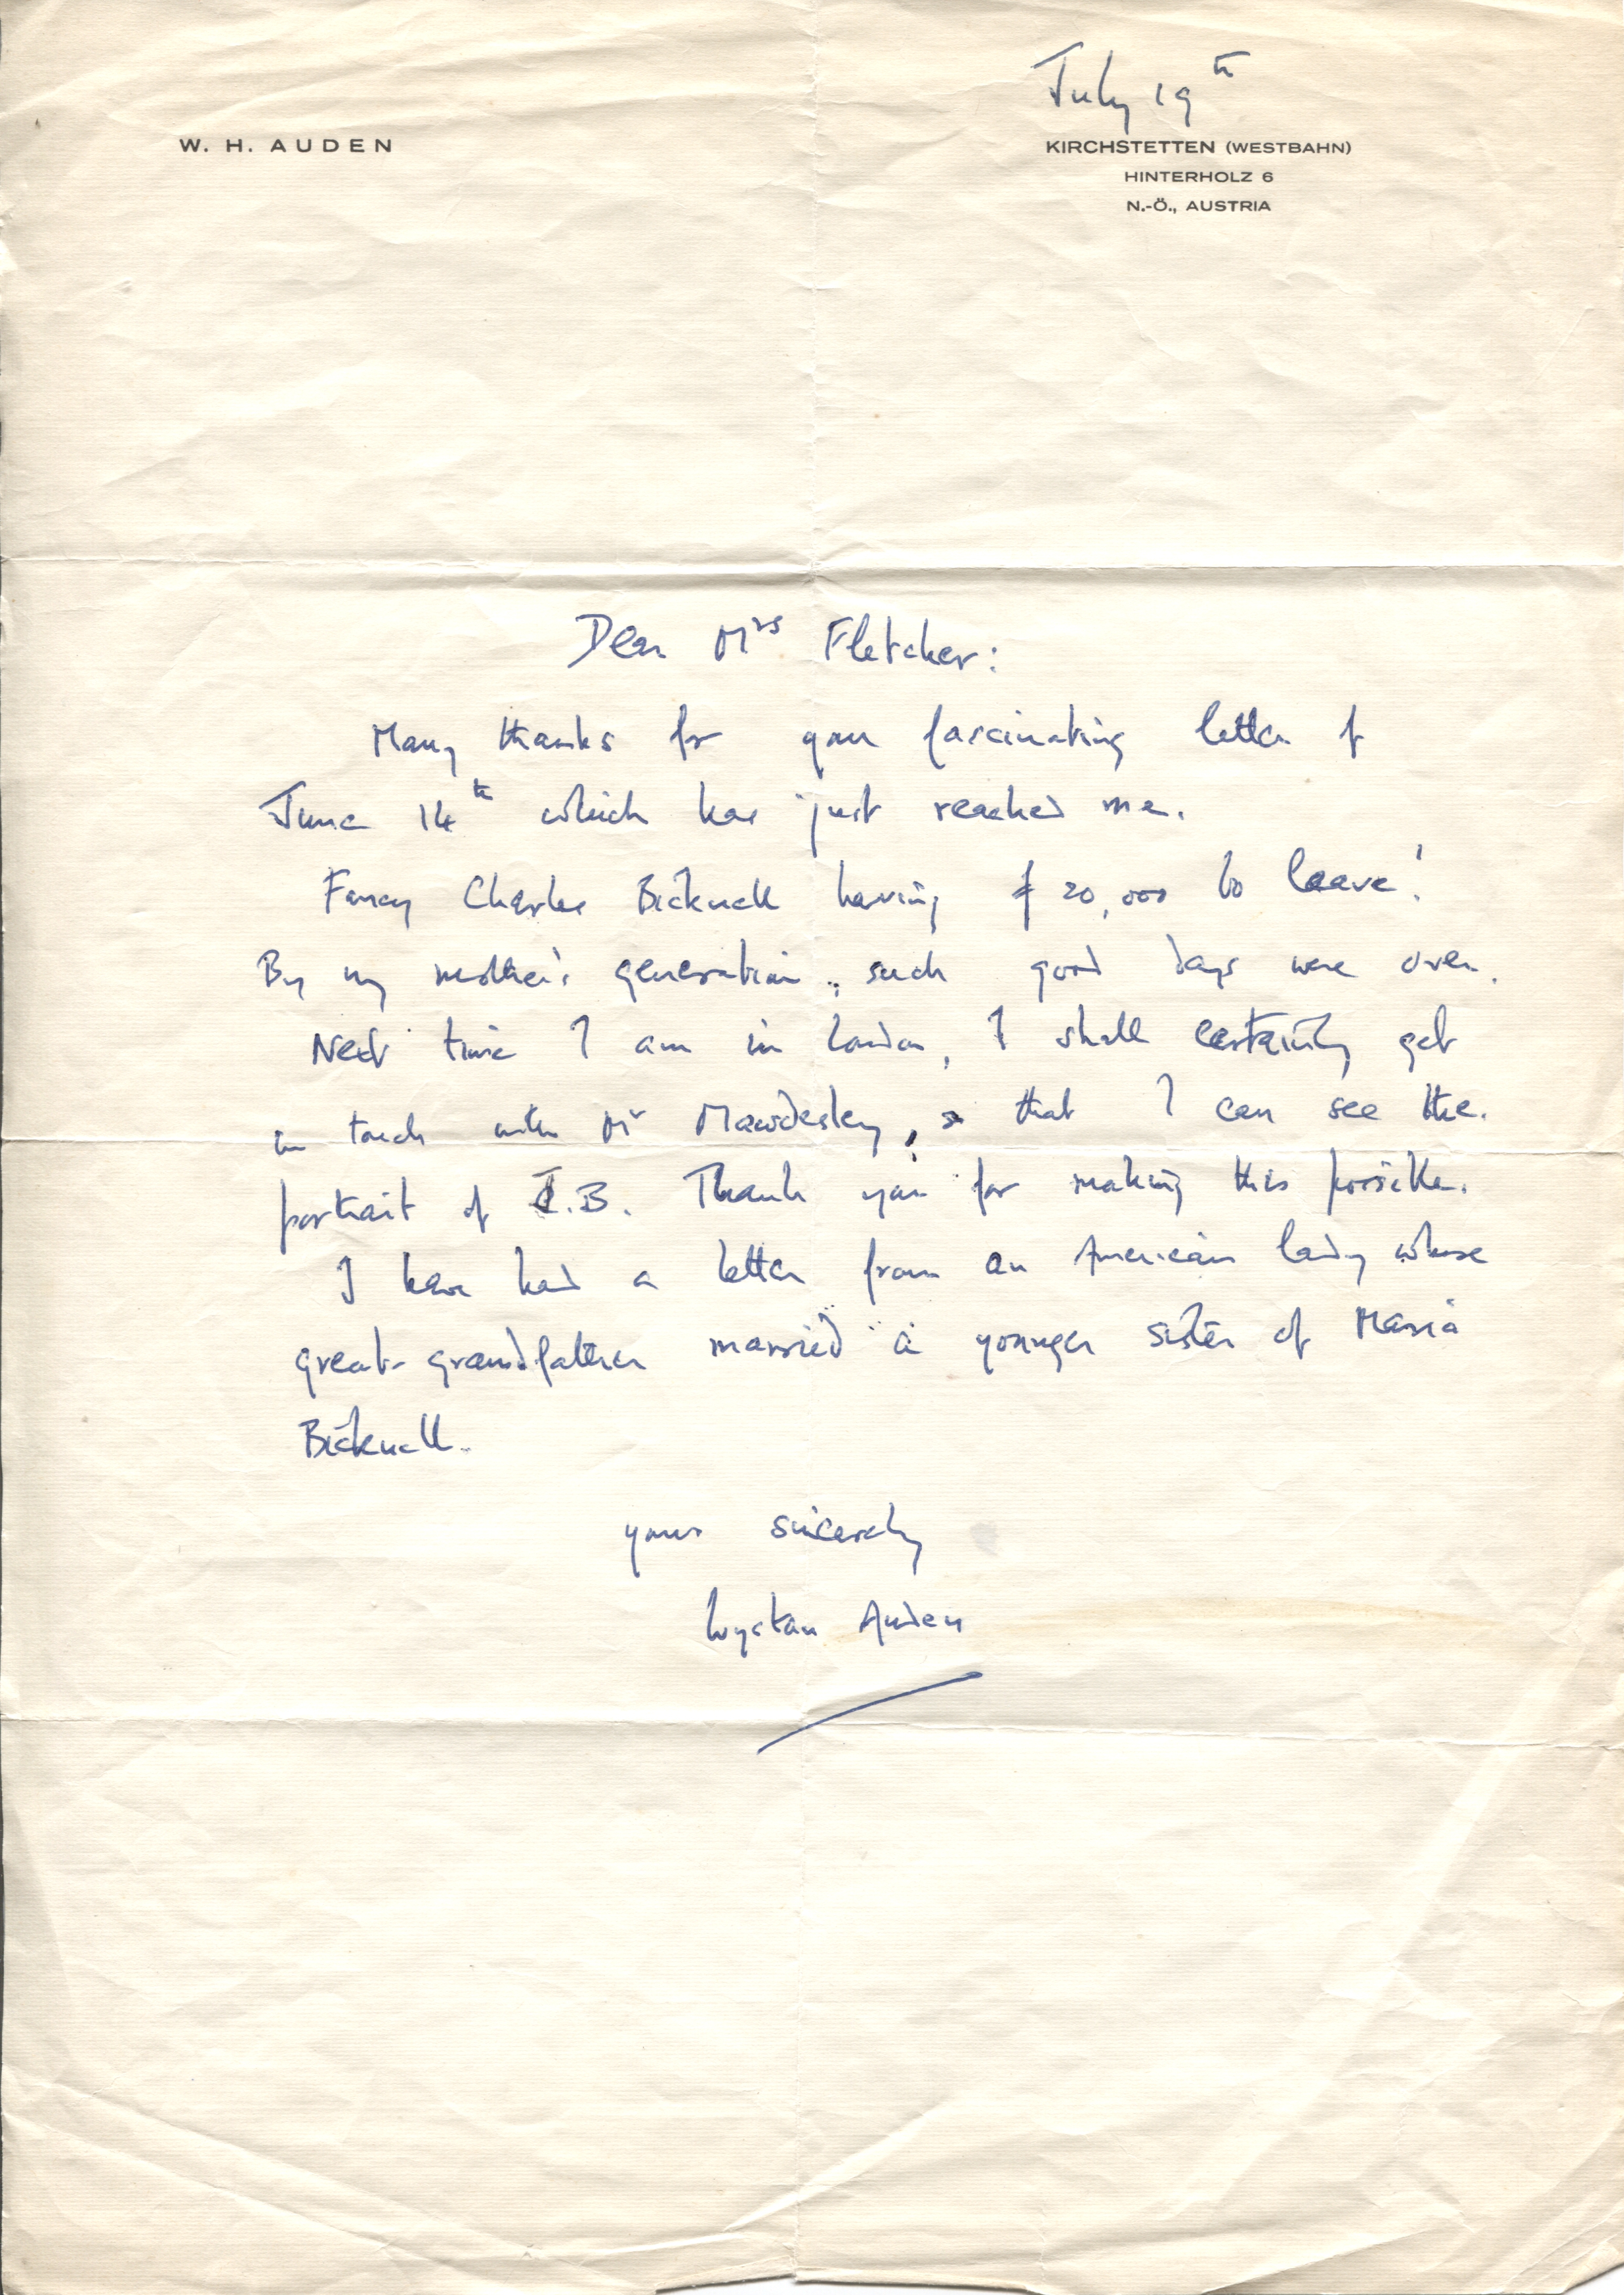 July 19th
W. H. AUDEN
KIRCHSTETTEN (WESTBAHN)
HINTERHOLZ 6
N.-Ö., AUSTRIA
Dear Mrs Fletcher:
Many thanks for your fascinating letter of
June 14th which has just reached me.
Fancy Charles Bicknell having £20,000 to leave!
By my mother's generation, such good days were over.
Next time I am in London, I shall certainly get
in touch with Mr Mawdesley, so that I can see the
portrait of .B. Thank you for making this possible.
I have had a letter from an American lady whose
great-grandfather married a younger sister of Maria
Bicknell.
yours sincerely
Wystan Auden